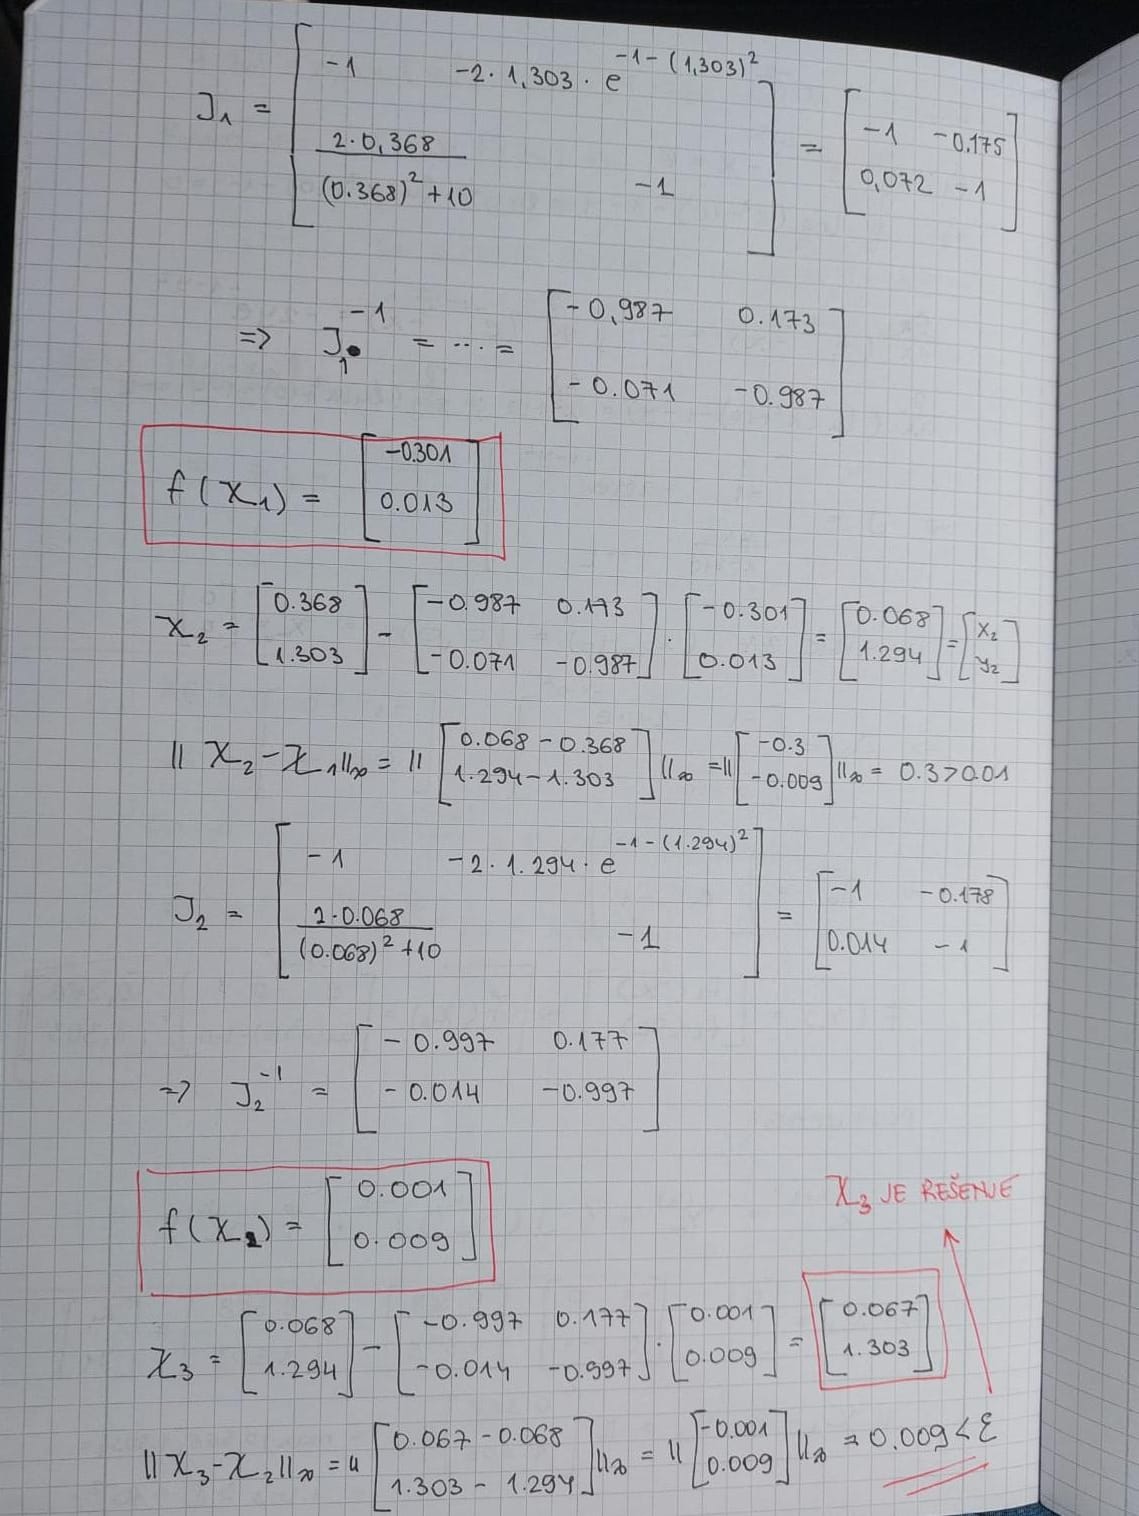 J₁ = [ -1   -2·1,303·e^(-1-(1,303)²) ; 2·0,368/((0.368)²+10)   -1 ] = [ -1   -0.175 ; 0,072   -1 ]
=> J₁⁻¹ = ... = [ -0,987   0.173 ; -0.071   -0.987 ]
f(x₁) = [ -0.301 ; 0.013 ]
x₂ = [ 0.368 ; 1.303 ] - [ -0.987   0.173 ; -0.071   -0.987 ] · [ -0.301 ; 0.013 ] = [ 0.068 ; 1.294 ] = [ x₂ ; y₂ ]
|| x₂ - x₁ ||∞ = || [ 0.068 - 0.368 ; 1.294 - 1.303 ] ||∞ = || [ -0.3 ; -0.009 ] ||∞ = 0.3 > 0.01
J₂ = [ -1   -2·1.294·e^(-1-(1.294)²) ; 2·0.068/((0.068)²+10)   -1 ] = [ -1   -0.178 ; 0.014   -1 ]
=> J₂⁻¹ = [ -0.997   0.177 ; -0.014   -0.997 ]
f(x₂) = [ 0.001 ; 0.009 ]
x₃ JE REŠENJE
x₃ = [ 0.068 ; 1.294 ] - [ -0.997   0.177 ; -0.014   -0.997 ] · [ 0.001 ; 0.009 ] = [ 0.067 ; 1.303 ]
|| x₃ - x₂ ||∞ = || [ 0.067 - 0.068 ; 1.303 - 1.294 ] ||∞ = || [ -0.001 ; 0.009 ] ||∞ = 0.009 < ε